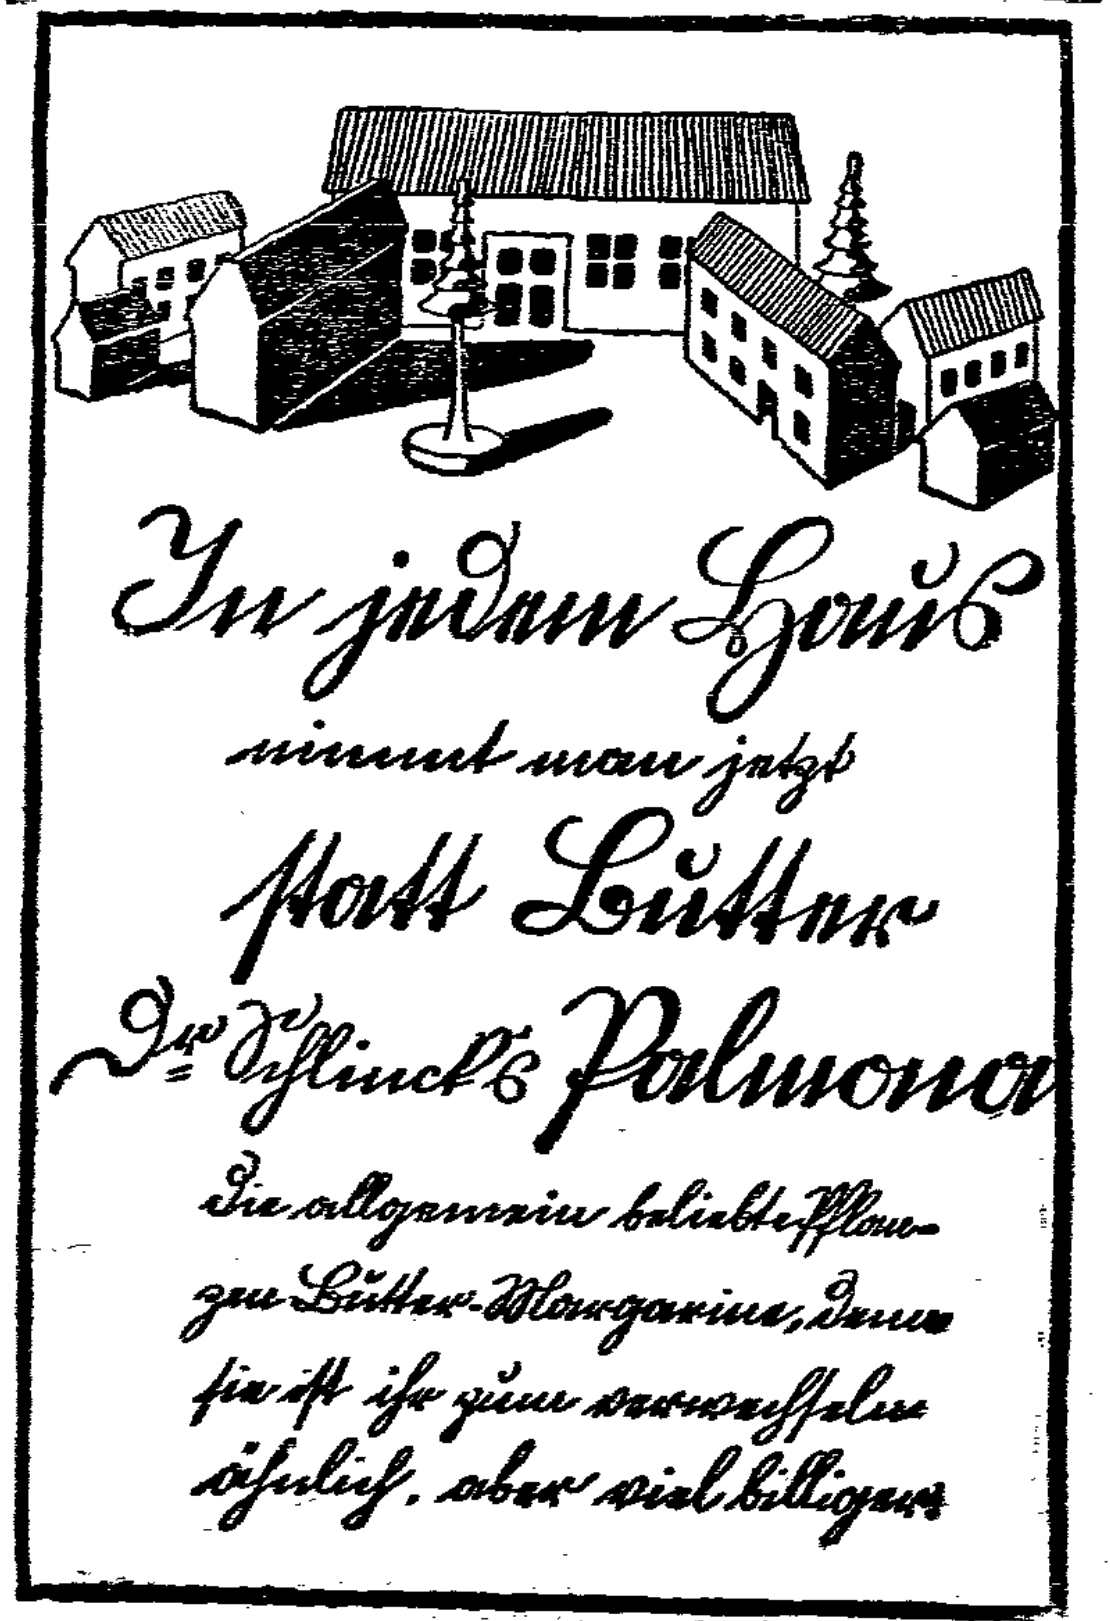 In jedem Haus
nimmt man jetzt
statt Butter
Dr Schlinck's Palmona
Die allgemein beliebte Pflan-
zen-Butter-Margarine, denn
sie ist ihr zum verwechseln
ähnlich, aber viel billiger.